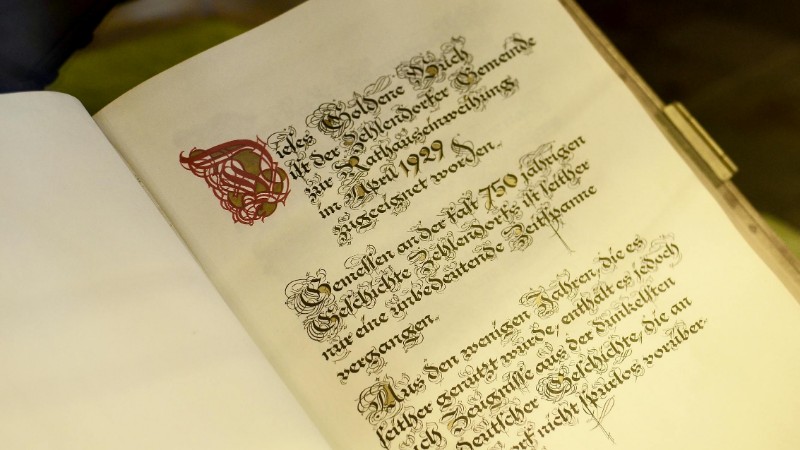 Dieses Goldene Buch
ist der Zehlendorfer Gemeinde
zur Rathauseinweihung
im April 1929
zugeeignet worden.
Gemessen an der fast 750 jährigen
Geschichte Zehlendorfs ist seither
nur eine unbedeutende Zeitspanne
vergangen.
Aus den wenigen Jahren, die es
seither genutzt wurde, enthält es jedoch
auch Zeugnisse aus der dunkelsten
deutscher Geschichte, die an
nicht spurlos vorüber-